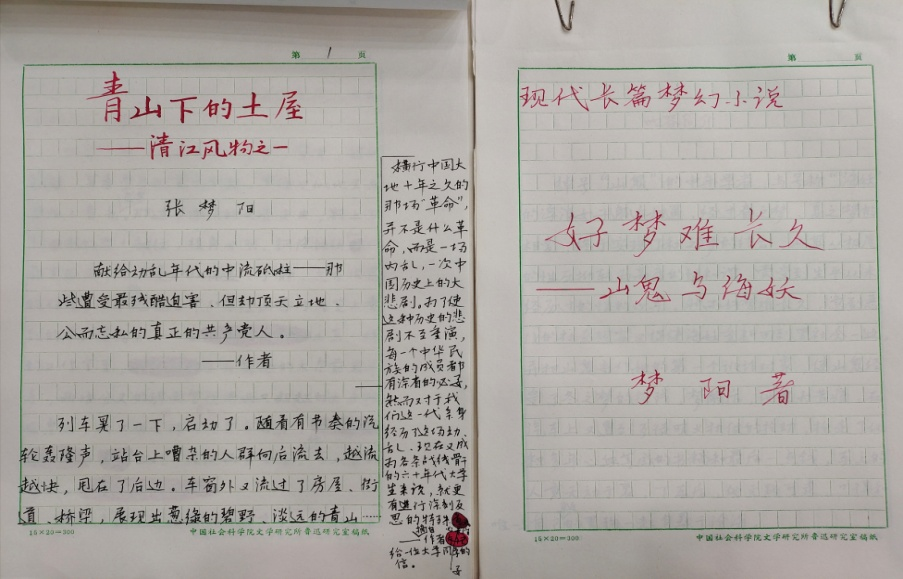 第 1 页
青山下的土屋
——清江风物之一
张梦阳
献给动乱年代的中流砥柱——那
些遭受最残酷迫害、但却顶天立地、
公而忘私的真正的共产党人。
——作者
列车晃了一下，启动了。随着有节奏的汽
轮轰隆声，站台上嘈杂的人群向后流去，越流
越快，甩在了后边。车窗外又流过了房屋、街
道、桥梁，展现出葱绿的碧野、淡远的青山……
15×20=300
中国社会科学院文学研究所鲁迅研究室稿纸
横行中国大
地十年之久的
那场“革命”，
并不是什么革
命，而是一场
内乱，一次中
国历史上的大
悲剧。为了使
这种历史的悲
剧不至重演，
每一个中华民
族的成员都
有深省的必要，
然而对于我
们这一代亲身
经历了这场动
乱、现在又成
为各条战线骨干
的六十年代大学
生来说，就更
有进行深刻反
思的特殊
——作者
给一位大学同学的
信。
第 页
现代长篇梦幻小说
好梦难长久
——山鬼与海妖
梦阳著
15×20=300
中国社会科学院文学研究所鲁迅研究室稿纸